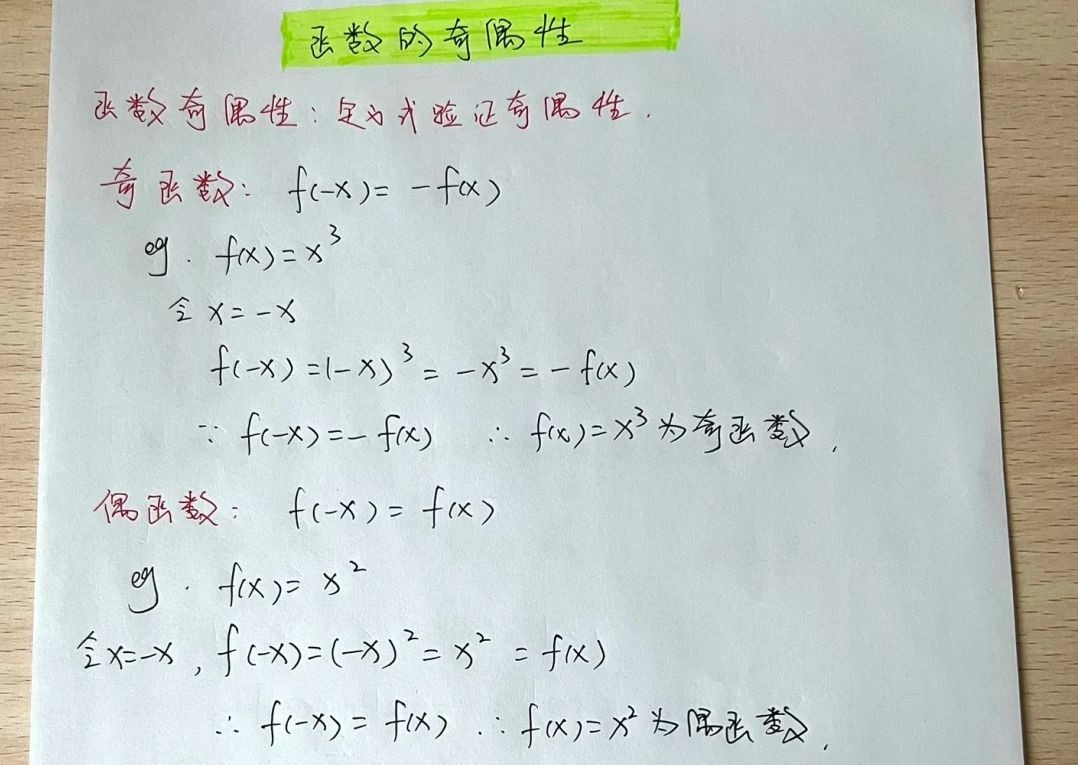 函数的奇偶性
函数奇偶性:定义式验证奇偶性.
奇函数: f(-x)= -f(x)
eg. f(x)=x³
令 x=-x
f(-x)=(-x)³= -x³= -f(x)
∵ f(-x)=-f(x) ∴ f(x)=x³为奇函数.
偶函数: f(-x)= f(x)
eg. f(x)= x²
令x=-x, f(-x)=(-x)²= x² = f(x)
∴ f(-x)= f(x) ∴ f(x)=x²为偶函数.